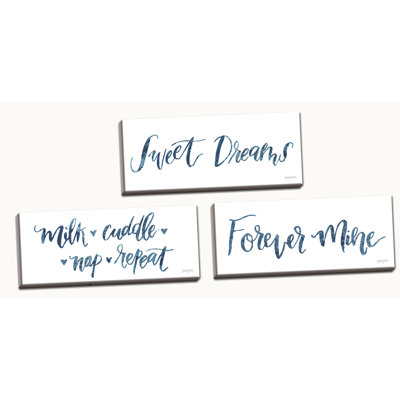 Sweet Dreams
milk ♥ cuddle ♥
♥ nap ♥ repeat
Forever Mine